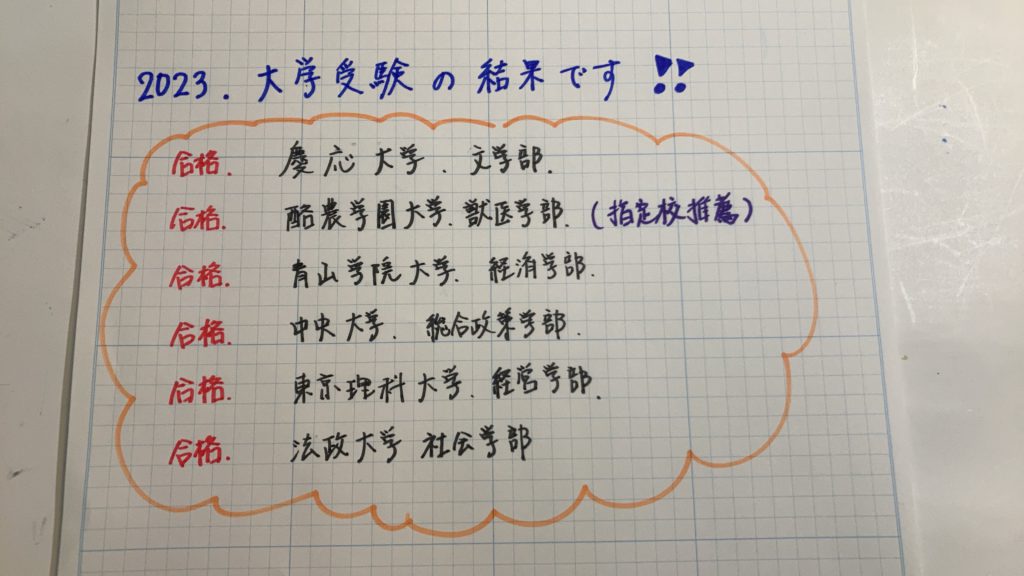 2023. 大学受験の結果です!!
合格. 慶応大学. 文学部.
合格. 酪農学園大学. 獣医学部. (指定校推薦)
合格. 青山学院大学. 経済学部.
合格. 中央大学. 総合政策学部.
合格. 東京理科大学. 経営学部.
合格. 法政大学 社会学部